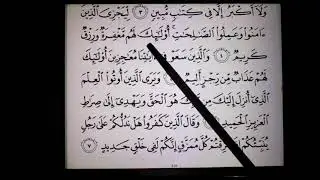 وَلَآ أَكْبَرُ إِلَّا فِى كِتَٰبٍ مُّبِينٍ ٣ لِّيَجْزِىَ ٱلَّذِينَ
ءَامَنُوا۟ وَعَمِلُوا۟ ٱلصَّٰلِحَٰتِ أُو۟لَٰٓئِكَ لَهُم مَّغْفِرَةٌ وَرِزْقٌ
كَرِيمٌ ٤ وَٱلَّذِينَ سَعَوْ فِىٓ ءَايَٰتِنَا مُعَٰجِزِينَ أُو۟لَٰٓئِكَ
لَهُمْ عَذَابٌ مِّن رِّجْزٍ أَلِيمٌ ٥ وَيَرَى ٱلَّذِينَ أُوتُوا۟ ٱلْعِلْمَ
ٱلَّذِىٓ أُنزِلَ إِلَيْكَ مِن رَّبِّكَ هُوَ ٱلْحَقَّ وَيَهْدِىٓ إِلَىٰ صِرَٰطِ
ٱلْعَزِيزِ ٱلْحَمِيدِ ٦ وَقَالَ ٱلَّذِينَ كَفَرُوا۟ هَلْ نَدُلُّكُمْ عَلَىٰ رَجُلٍ
يُنَبِّئُكُمْ إِذَا مُزِّقْتُمْ كُلَّ مُمَزَّقٍ إِنَّكُمْ لَفِى خَلْقٍ جَدِيدٍ ٧